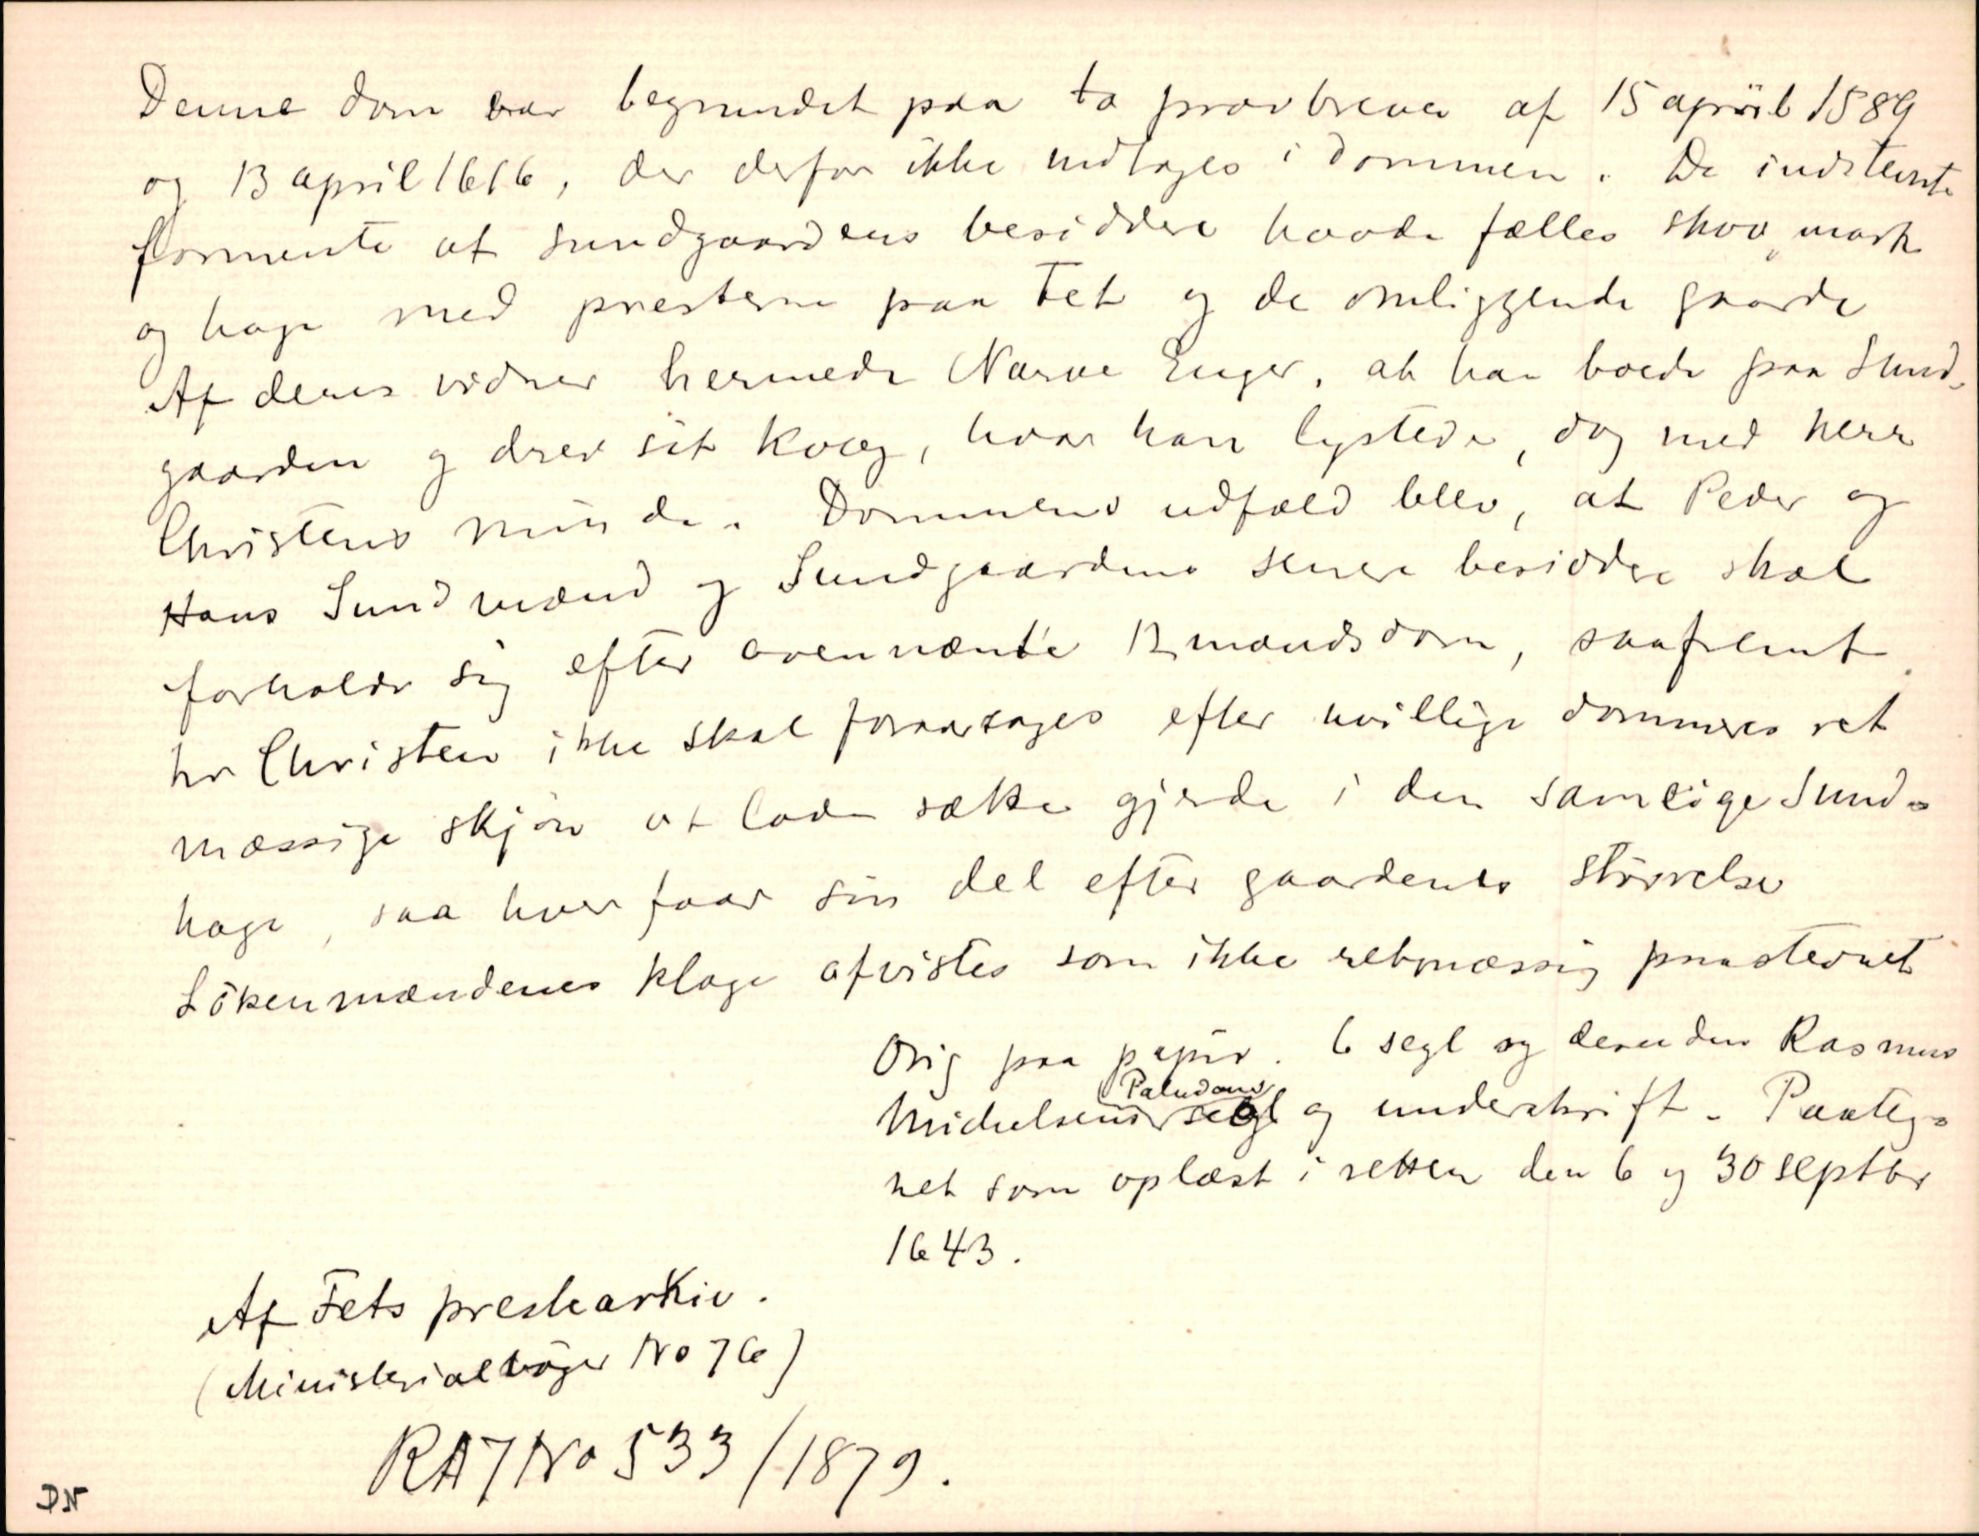 Denne dom var begrundet paa to prøvbreve af 15 april 1589
og 13 april 1616, der derfor ikke indtages i dommen. De indstevnte
formente at sundgaardens besiddere havde fælles skov, mark
og hage med presterne paa Fet og de omliggende gaarde
Af deres vidner hermede Narve Enger, at han boede paa Sund-
gaarden og drev sit kvæg, hvor han lystede, dog med herr
Christens minde. Dommens udfald blev, at Peder og
Hans Sundmænd og Sundgaardens senere besiddere skal
forholde sig efter ovennænte 12 mandsdom, saafremt
hr Christen ikke skal foraarsages efter uvillige dommeres ret
mæssige skjøn at lade sætte gjerde i den samtlige Sund-
hage, saa hver faar sin del efter gaardenes størrelse
Lökenmændenes klage afvistes som ikke retmæssig paastevnet
Orig paa papir. 6 segl og desuden Rasmus
Michelsens Paludans segl og underskrift. Paateg-
net som oplæst i retten den 6 og 30 septbr
1643.
Af Fets prestearkiv.
(Ministerialbøger No 76)
RA7 No 533/1879.
DN